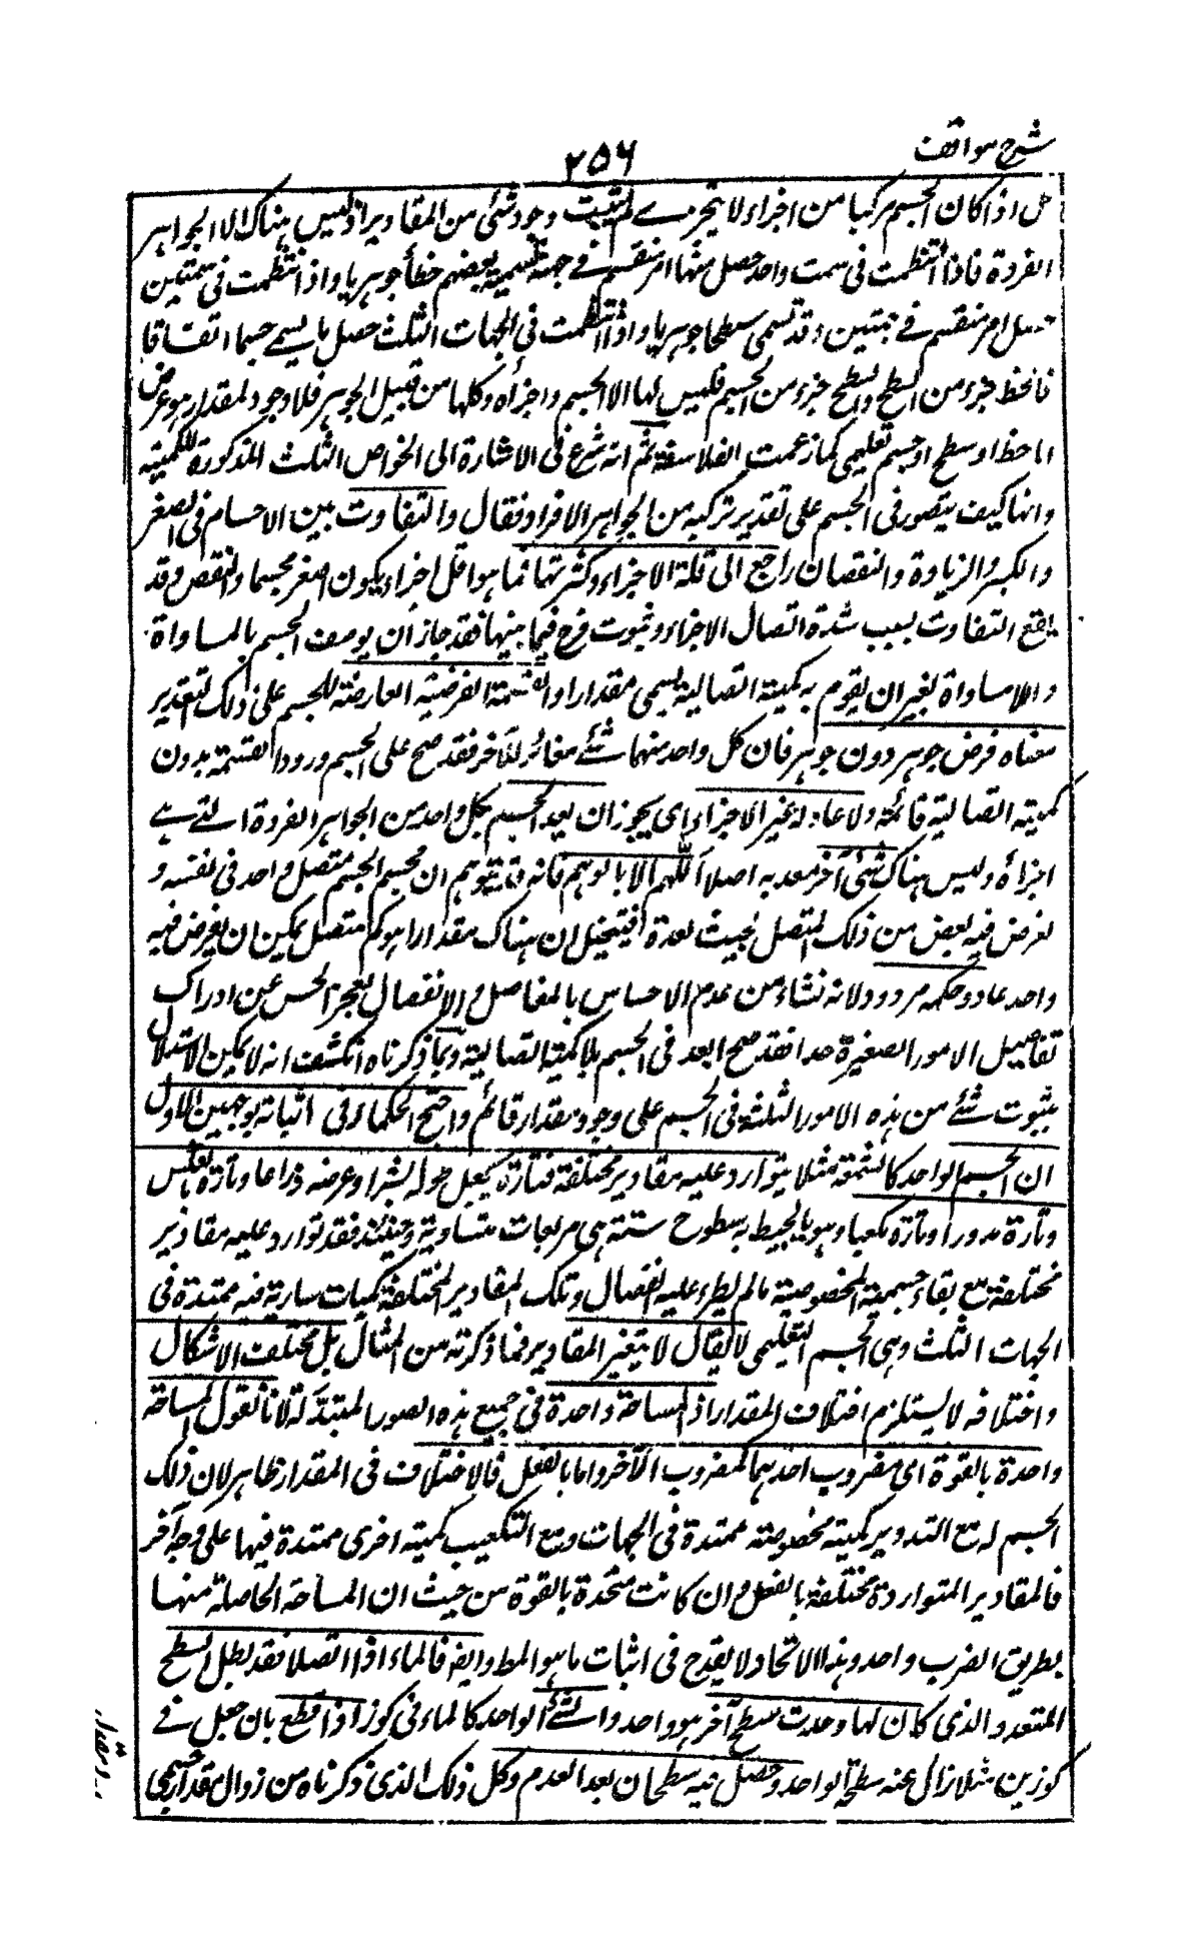 شرح مواقف
۲۵۶
بل اذا كان الجسم مركبا من اجزاء لا يتجزے لم يثبت وجود شئ من المقادير اذ ليس هناك الا الجواهر
الفردة فاذا انتظمت فى سمت واحد حصل منها امر منقسم فے جهة يسميه بعضهم خطا جوهريا واذا انتظمت فى سمتين
حصل امر منقسم فے جهتين وقد تسمى سطحا جوهريا واذا انتظمت فى الجهات الثلث حصل ما يسمے جسما اتفاقا
فالخط جزء من السطح والسطح جزء من الجسم فليس لها الا الجسم واجزاه وكلها من قبيل الجوهر فلا وجود لمقدار هو عرض
اما خط او سطح او جسم تعليمى كما زعمت الفلاسفة ثم انه شرع فى الاشارة الى الخواص الثلث المذكورة للكمية
وانها كيف يتصور فى الجسم على تقدير تركبه من الجواهر الافراد فقال والتفاوت بين الاجسام فى الصغر
والكبر والزيادة والنقصان راجع الى قلة الاجزاء وكثرتها فما هو اقل اجزاء يكون اصغر حجما وانقص وقد
يقع التفاوت بسبب شدة اتصال الاجزاء وثبوت فرج فيما بينها فقد جاز ان يوصف الجسم بالمساواة
واللامساواة بغير ان يقوم به كمية اتصالية يسمى مقدارا والقسمة الفرضية العارضة للجسم على ذلك التقدير
معناه فرض جوهر دون جوهر فان كل واحد منهما شئے مغائر للآخر فقد صح على الجسم ورود القسمة بدون
كمية اتصالية قائمة ولا عاد له غير الاجزاء اى يجوز ان يعد الجسم بكل واحد من الجواهر الفردة التے هے
اجزاه وليس هناك شئ آخر معد به اصلا اللهم الا بالوهم فانه قد يتوهم ان حجم الجسم متصل واحد فى نفسه و
يفرض فيه بعض من ذلك المتصل بحيث يعده فيتخيل ان هناك مقدارا هو كم متصل يمكن ان يفرض فيه
واحد عاد وحكمه مردود لانه نشاء من عدم الاحساس بالمفاصل والانفصال لعجز الحس عن ادراك
تفاصيل الامور الصغيرة جدا فقد صح العد فى الجسم بلا كمية اتصالية وبما ذكرناه انكشف انه لا يمكن الاستدلال
بثبوت شئے من هذه الامور الثلثة فى الجسم على وجود مقدار قائم واحتج الحكماء فى اثباته بوجهين الاول
ان الجسم الواحد كالشمعة مثلا يتوارد عليه مقادير مختلفة فتارة يجعل طوله شبرا وعرضه ذراعا وتارة بالعكس
وتارة مدورا وتارة مكعبا وهو ما يحيط به سطوح ستة هى مربعات متساوية وحينئذ فقد توارد عليه مقادير
مختلفة مع بقاء جسميته المخصوصة ما لم يطرء عليه انفصال وتلك المقادير المختلفة كميات سارية فيه ممتدة فى
الجهات الثلث وهى الجسم التعليمى لا يقال لا يتغير المقادير فيما ذكرته من المثال بل يختلف الاشكال
واختلافه لا يستلزم اختلاف المقدار اذ المساحة واحدة فى جميع هذه الصور المتبدلة لانا نقول المساحة
واحدة بالقوة اى مضروب احدهما كمضروب الآخر واما بالفعل فالاختلاف فى المقدار ظاهر لان ذلك
الجسم له مع التدوير كمية مخصوصة ممتدة فى الجهات ومع التكعيب كمية اخرى ممتدة فيها على وجه آخر
فالمقادير المتواردة مختلفة بالفعل وان كانت متحدة بالقوة من حيث ان المساحة الحاصلة منها
بطريق الضرب واحد وهذا الاتحاد لا يقدح فى اثبات ما هو المط وايضا فالماء اذا اتصلا فقد بطل السطح
المتعدد الذى كان لها وحدث سطح آخر هو واحد والشئے الواحد كالماء فى كوز اذا قطع بان جعل فے
كوزين مثلا زال عنه سطحه الواحد وحصل فيه سطحان بعد العدم وكل ذلك الذى ذكرناه من زوال مقدار جسمى